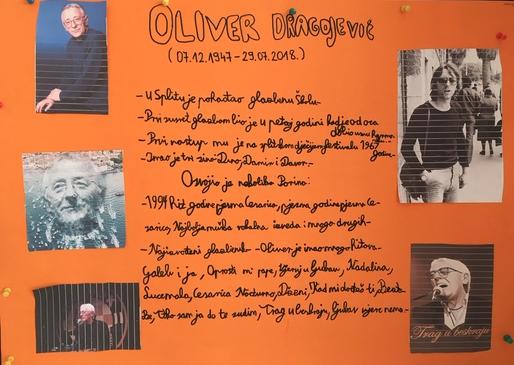 OLIVER DRAGOJEVIĆ
(07.12.1947-29.07.2018.)
- U Splitu je pohađao glazbenu školu-
- Prvi susret glazbom bio je u petoj godini kad je od oca
dobio usnu
- Prvi nastup mu je na splitskom dječjem festivalu 1961
godine-
- Imao je tri sina Dino, Damir i Davor.-
Osvojio je nekoliko Porina:
-199 godine pjesma Cesarica, pjesma godine pjesma Ce-
sarica, Najbolja muška vokalna izvedba i mnogo drugih-
- Najpoznatiji glazbenik - Oliver je imao mnogo hitova-
Galeb i ja, Oprosti mi pape, Vjeruj u ljubav, Nadalina,
Lucemala, Cesarica Nocturno, Dženi, Kad mi dođeš ti,
Ča će, Tko sam ja da ti sudim, Trag u beskraju, Ljubav
Trag u beskraju